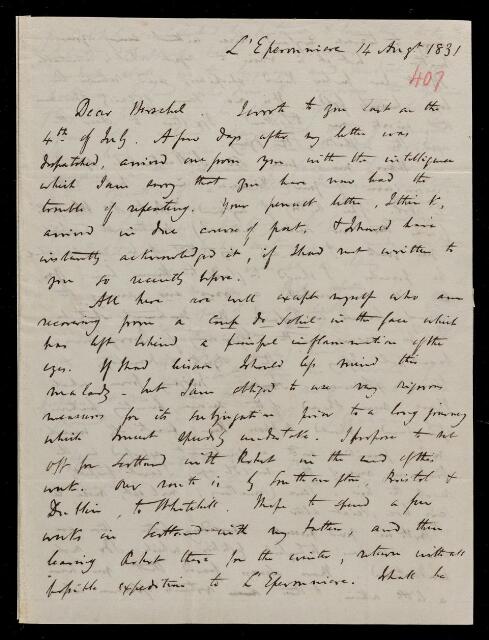 L'Eperonniere 14 Augt 1831
407
Dear Herschel. I wrote to you last on the
4th of July. A few days after my letter was
dispatched, arrived one from you with the intelligence
which I am sorry that you have now had the
trouble of repeating. Your present letter,
arrived in due course of post, & I should have
instantly acknowledged it, if I had not written to
you so recently before.
All here are well except myself who am
recovering from a Coup de Soleil in the face which
has left behind a painful inflammation of the
eyes. If I had leisure I should less mind this
malady - but I am obliged to use very rigorous
measures for its subjugation prior to a long journey
which I must speedily undertake. I propose to set
off for Scotland with Robert in the end of this
week. Our route is by Southampton, Bristol &
Dublin, to Whitehill. I hope to spend a few
weeks in Scotland with my father, and then
leaving Robert there for the winter, return with all
possible expedition to L'Eperonniere. I shall be